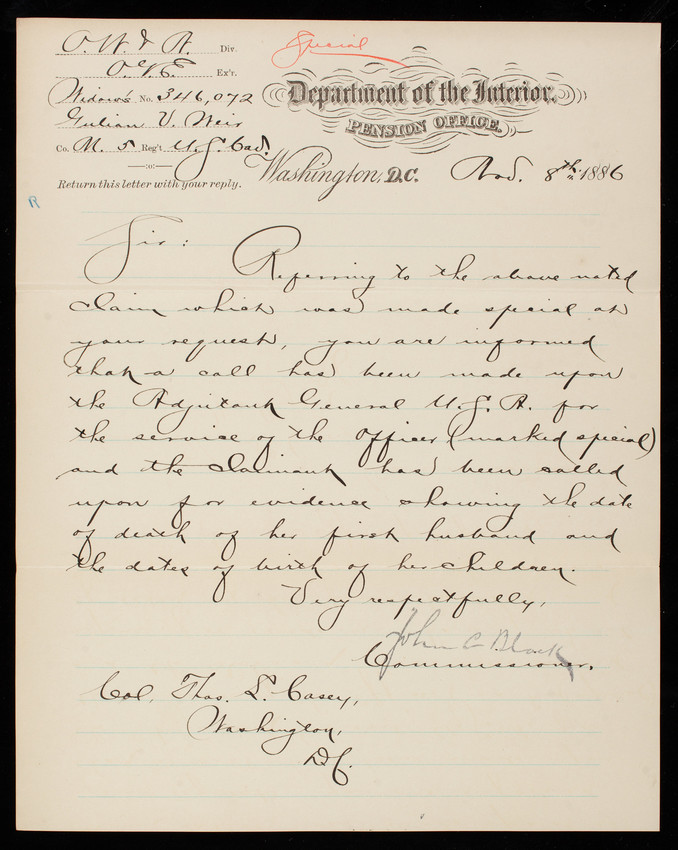 O. W. & A. Div.
O.V.E. Ex'r.
Special
Widow's No. 346,072
Gulian V. Weir
Co. M. 5 Reg't U.S. Cad.
—:o:—
Return this letter with your reply.
Department of the Interior,
PENSION OFFICE,
Washington, D.C. Nov. 8th 1886
R
Sir:
Referring to the above noted
claim which was made special at
your request, you are informed
that a call has been made upon
the Adjutant General U.S.A. for
the service of the officer (marked special)
and the claimant has been called
upon for evidence showing the date
of death of her first husband and
the dates of birth of her children.
Very respectfully,
John C Black
Commissioner.
Col. Thos. L. Casey,
Washington,
D.C.